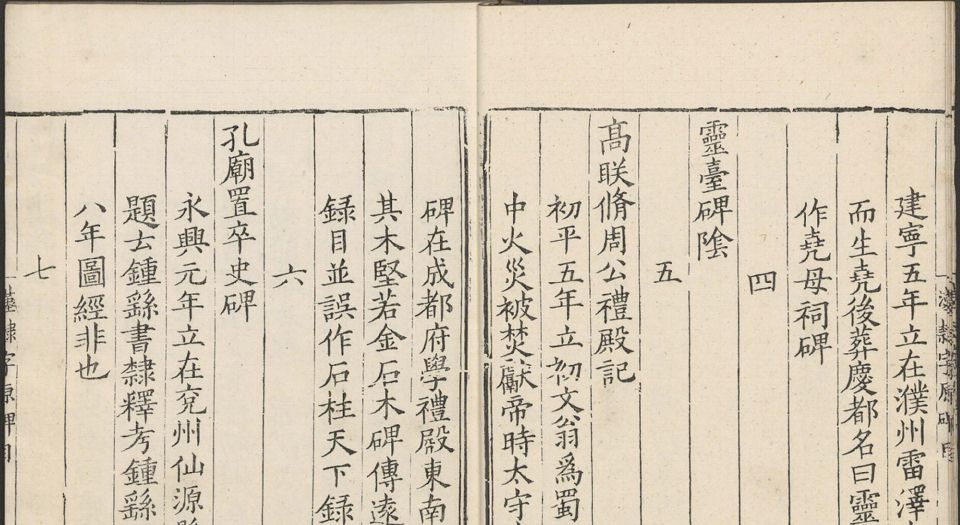 建寧五年立在濮州雷澤
而生堯後葬慶都名曰靈
作堯母祠碑
四
靈臺碑陰
五
高联脩周公禮殿記
初平五年立初文翁爲蜀
中火災被焚獻帝時太守
碑在成都府學禮殿東南
其木堅若金石木碑傳遠
録目並誤作石柱天下録
六
孔廟置卒史碑
永興元年立在兖州仙源縣
題云鍾繇書隸釋考鍾繇
八年圖經非也
七
漢隸字原碑目